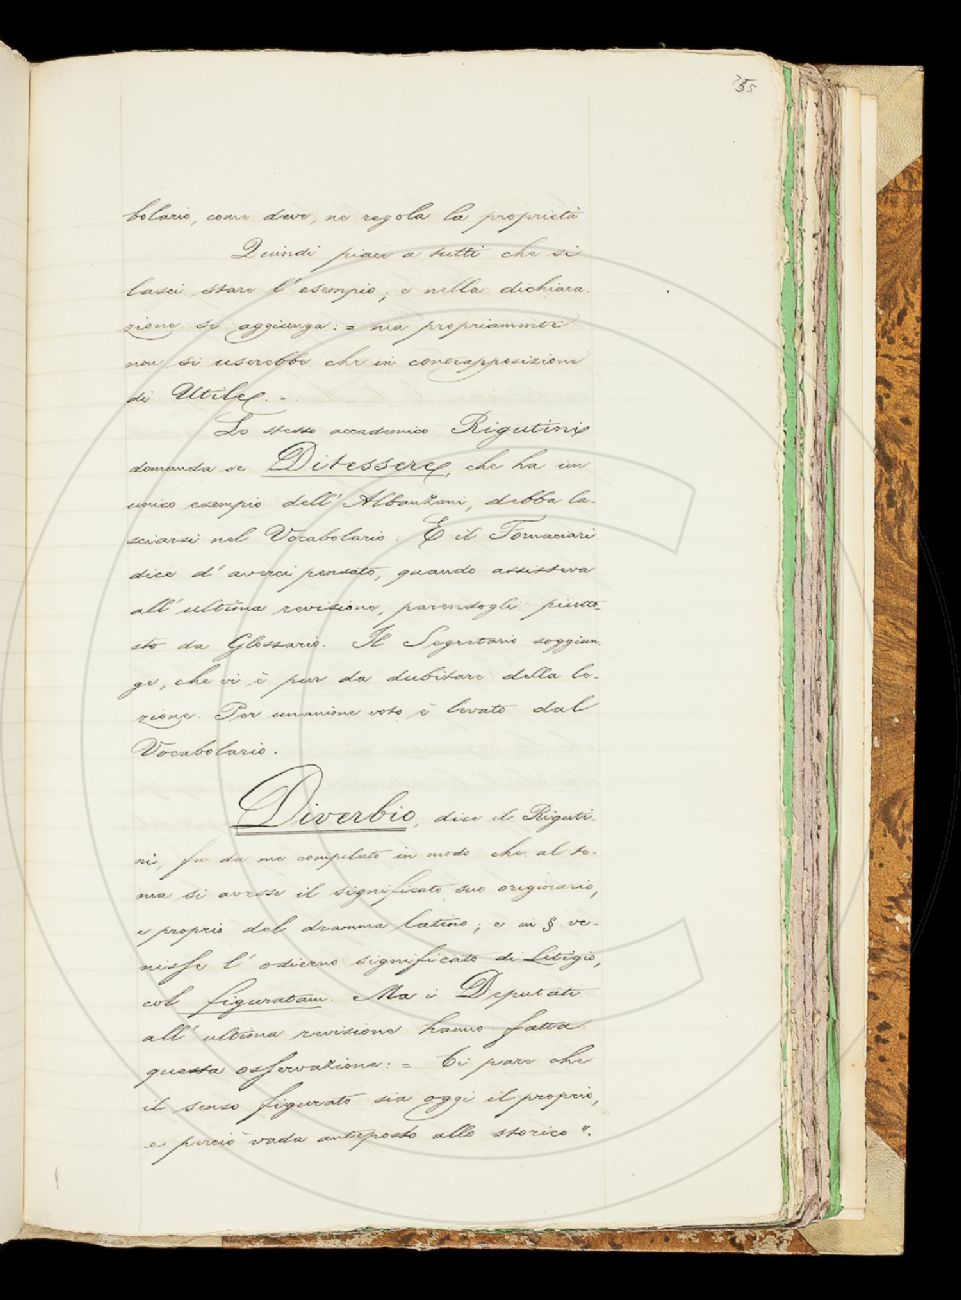 755
bolario, come deve, ne regola la proprietà
Quindi piace a tutti che si
lasci stare l'esempio, e nella dichiara-
zione si aggiunga: = ma propriamente
non si userebbe che in contrapposizione
di Utile. -
Lo stesso accademico Rigutini
domanda se Ditessere, che ha un
unico esempio dell'Albanzani, debba la-
sciarsi nel Vocabolario. E il Fornaciari
dice d'averci pensato, quando assisteva
all'ultima revisione, parendogli piutto-
sto da Glossario. Il Segretario soggiun
ge, che vi è pur da dubitare della le-
zione. Per unanime voto è levato dal
Vocabolario.
Diverbio, dice il Riguti-
ni, fu da me compilato in modo che al te-
ma si avesse il significato suo originario,
e proprio del dramma latino; e in § ve-
nisse l'odierno significato di Litigio,
col figuratam. Ma i Deputati
all'ultima revisione hanno fatta
questa osservazione: = Ci pare che
il senso figurato sia oggi il proprio,
e perciò vada anteposto allo storico".